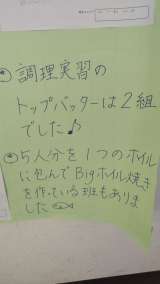 調理実習の
トップバッターは2組
でした♪
5人分を1つのホイル
に包んでBigホイル焼き
を作っている班もありま
した